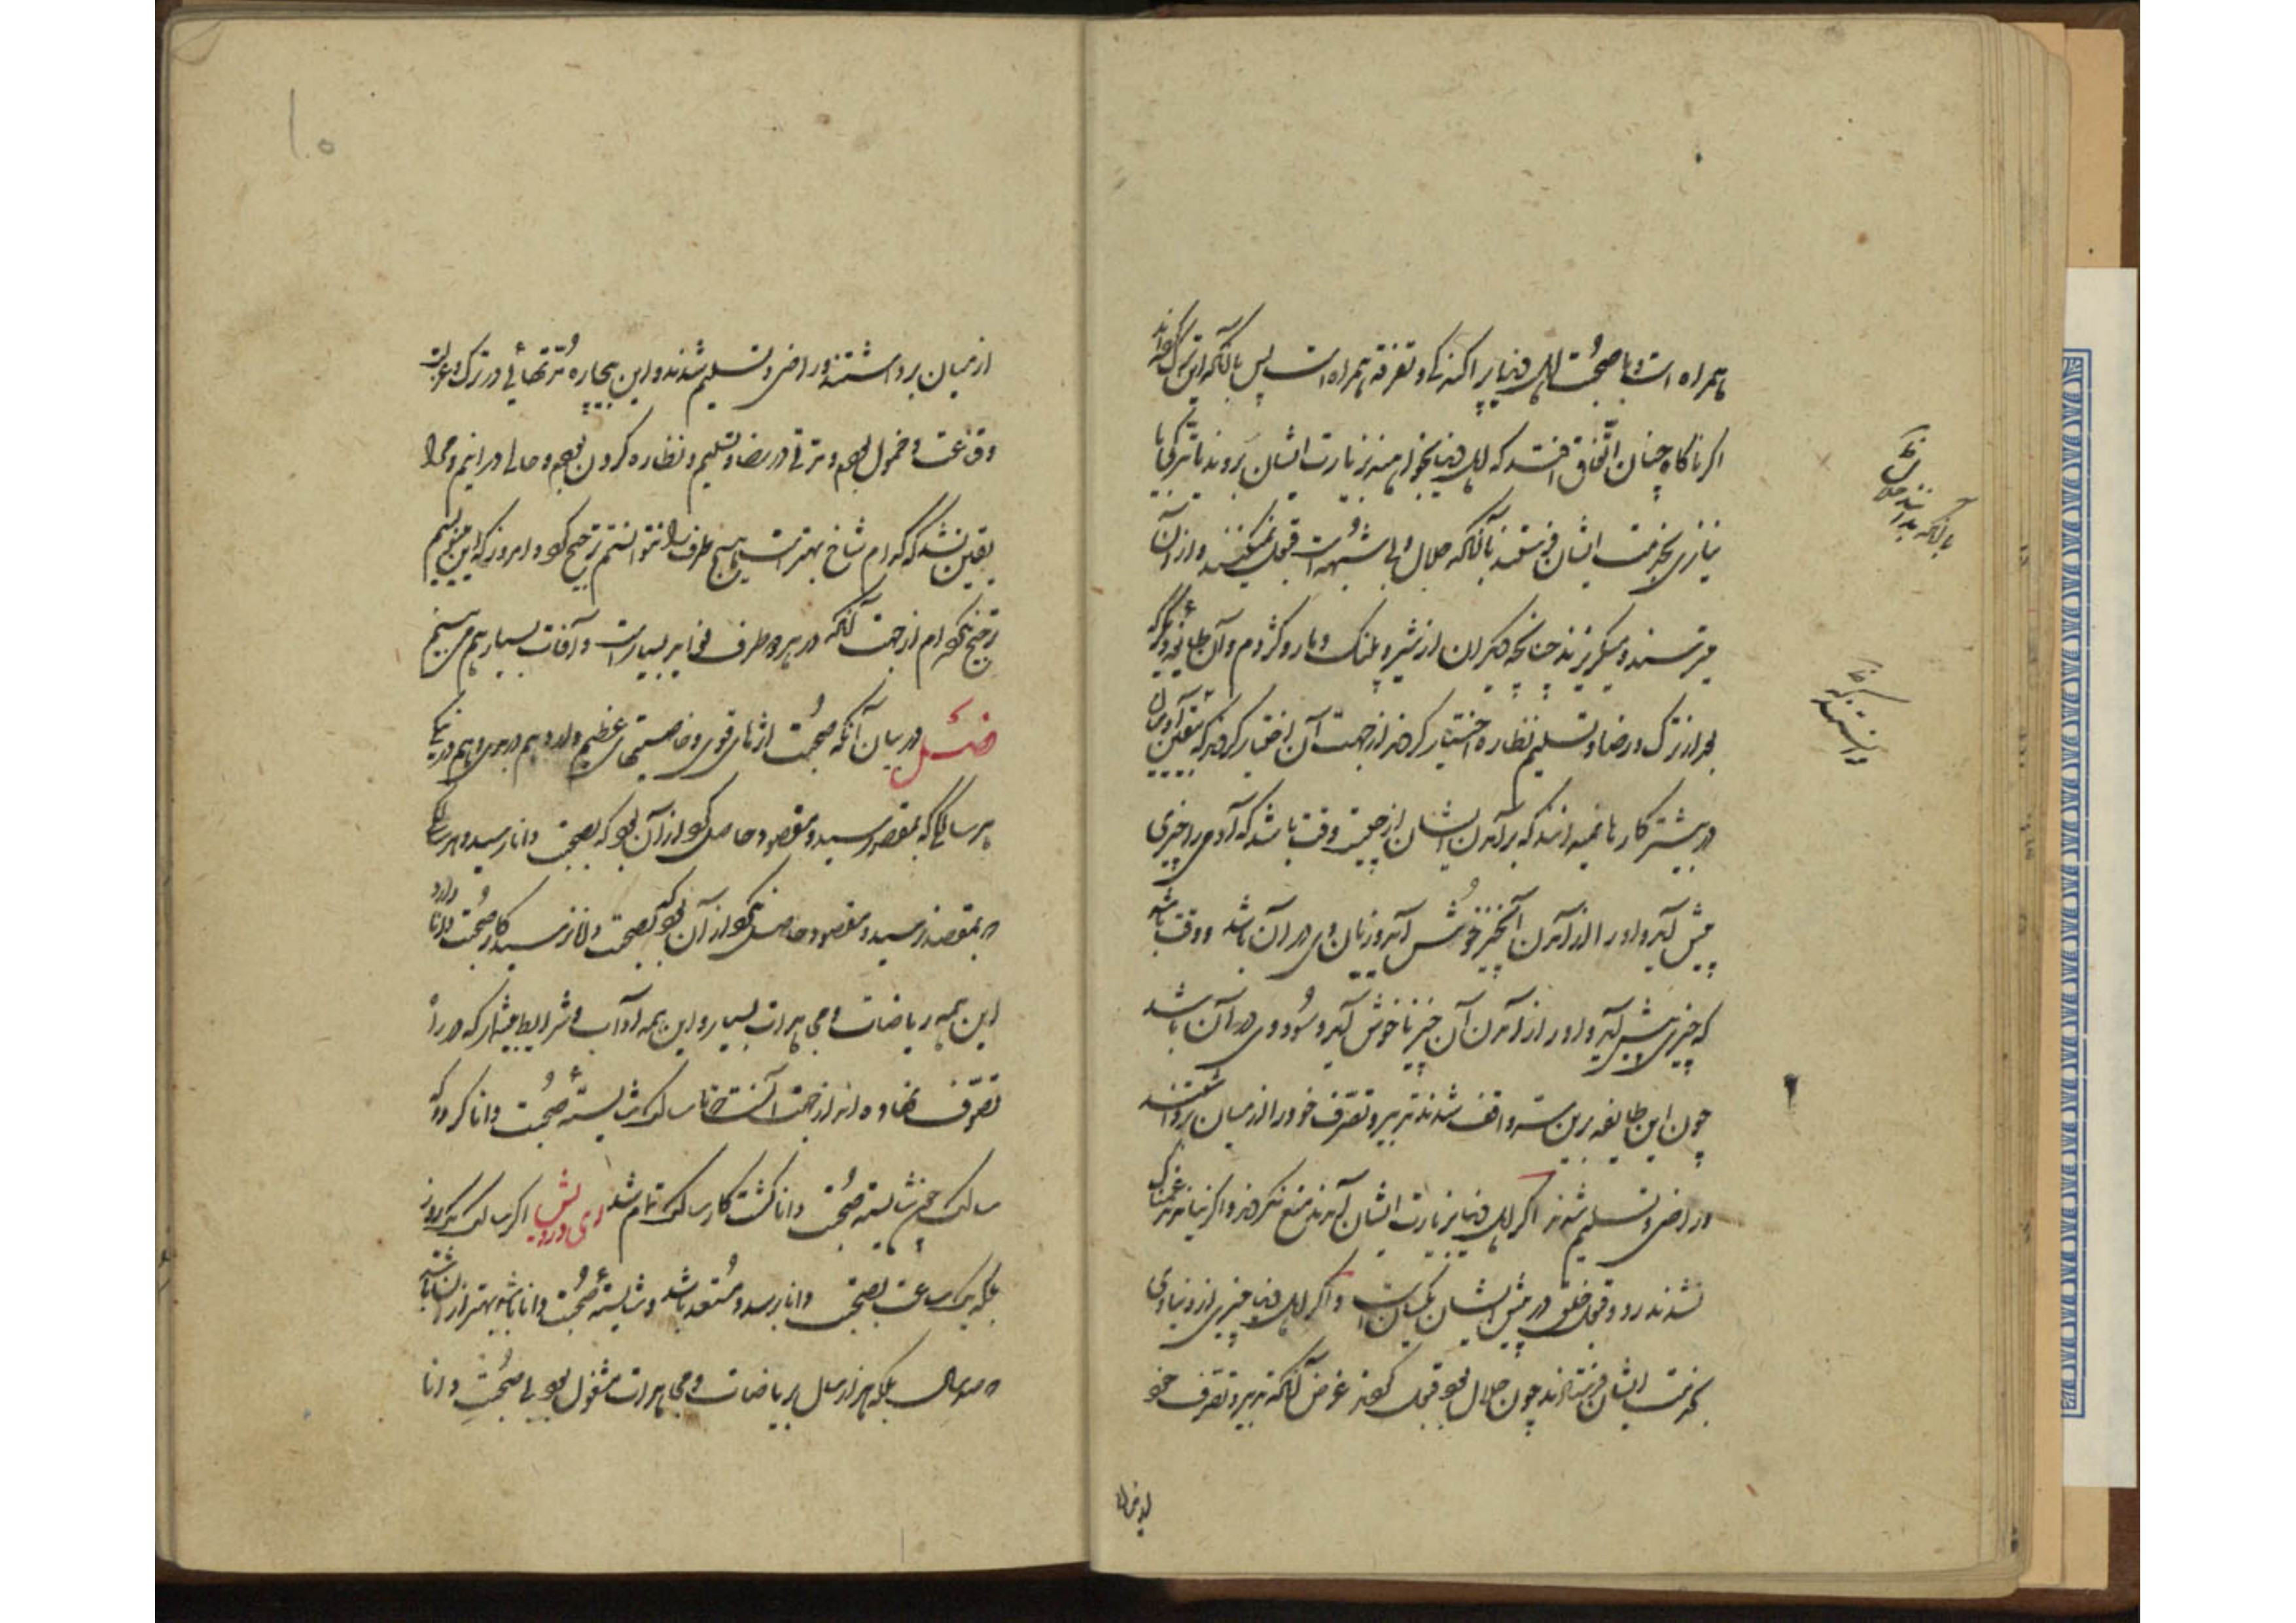 همراه است و با صحبت اهل دنیا پراکندگی و تفرقه همراه است پس با آنکه این ترک کرده‌اند
اگر ناگاه چنان اتفاق افتد که اهل دنیا بخواهند بزیارت ایشان روند یا تبرکی یا
نیازی بخدمت ایشان فرستند با آنکه حلال و بی شبهت است قبول نمیکنند و از آن
میترسند و میگریزند چنانچه دیگران از شیر و پلنگ و مار و کژدم و آن طایفه دیگر که
بعد از ترک در رضا و تسلیم نظاره اختیار کردند از جهت آن اختیار کردند که بیقین آدمی
در بیشتر کارها نمیداند که برآمدن ایشان از چیست وقت باشد که آدمی را چیزی
پیش آید و او را از آمدن آن چیز خوش آید و زیان وی در آن باشد و وقت باشد
که چیزی پیش آید و او را از آمدن آن چیز ناخوش آید و سود وی در آن باشد
چون این طایفه برین سر واقف شدند تدبیر و تصرف خود را از میان برداشتند
و راضی و تسلیم شدند اگر اهل دنیا بزیارت ایشان آمدند منع نکردند و اگر نیامدند غمناک
نشدند رد و قبول خلق در پیش ایشان یکسان است و اگر اهل دنیا چیزی از دنیاوی
بخدمت ایشان فرستادند چون حلال بود قبول کردند غرض آنکه تدبیر و تصرف خود
با آنکه بدانند حلال
بدانستند که
۱۰
از میان برداشتند و راضی و تسلیم شدند و این بیچاره مدتهای در ترک و عزلت
و قناعت و خمول بودم و مدتی در رضا و تسلیم و نظاره کردن بودم و حالی در اینم و مرا
یقین نشد که کدام شاخ بهتر است هیچ طرف را نتوانستم ترجیح کرد و امروز که این مینویسم
ترجیح نکرده‌ام از جهت آنکه در هر دو طرف فواید بسیار است و آفات بسیار هم می‌بینم
فصل در بیان آنکه صحبت اثرهای قوی و خاصیتهای عظیم دارد هم در بدی و هم در نیکی
هر سالکی که بمقصد رسید و مقصود حاصل کرد از آن بود که بصحبت دانا رسید و هر سالکی
که بمقصد نرسید و مقصود حاصل نکرد از آن بود که بصحبت دانا نرسید کار صحبت دانا دارد
این همه ریاضات و مجاهدات بسیار و این همه آداب و شرایط بیشمار که در راه
تصوف نهاده‌اند از جهت آنست تا سالک شایسته صحبت دانا گردد که
سالک چون شایسته صحبت دانا گشت کار سالک تمام شد ای درویش اگر سالک یک روز
بلکه یک ساعت بصحبت دانا رسد و مستعد باشد و شایسته صحبت دانا باشد بهتر از آن باشد
که صد سال بلکه هزار سال بریاضات و مجاهدات مشغول بود بی صحبت دانا